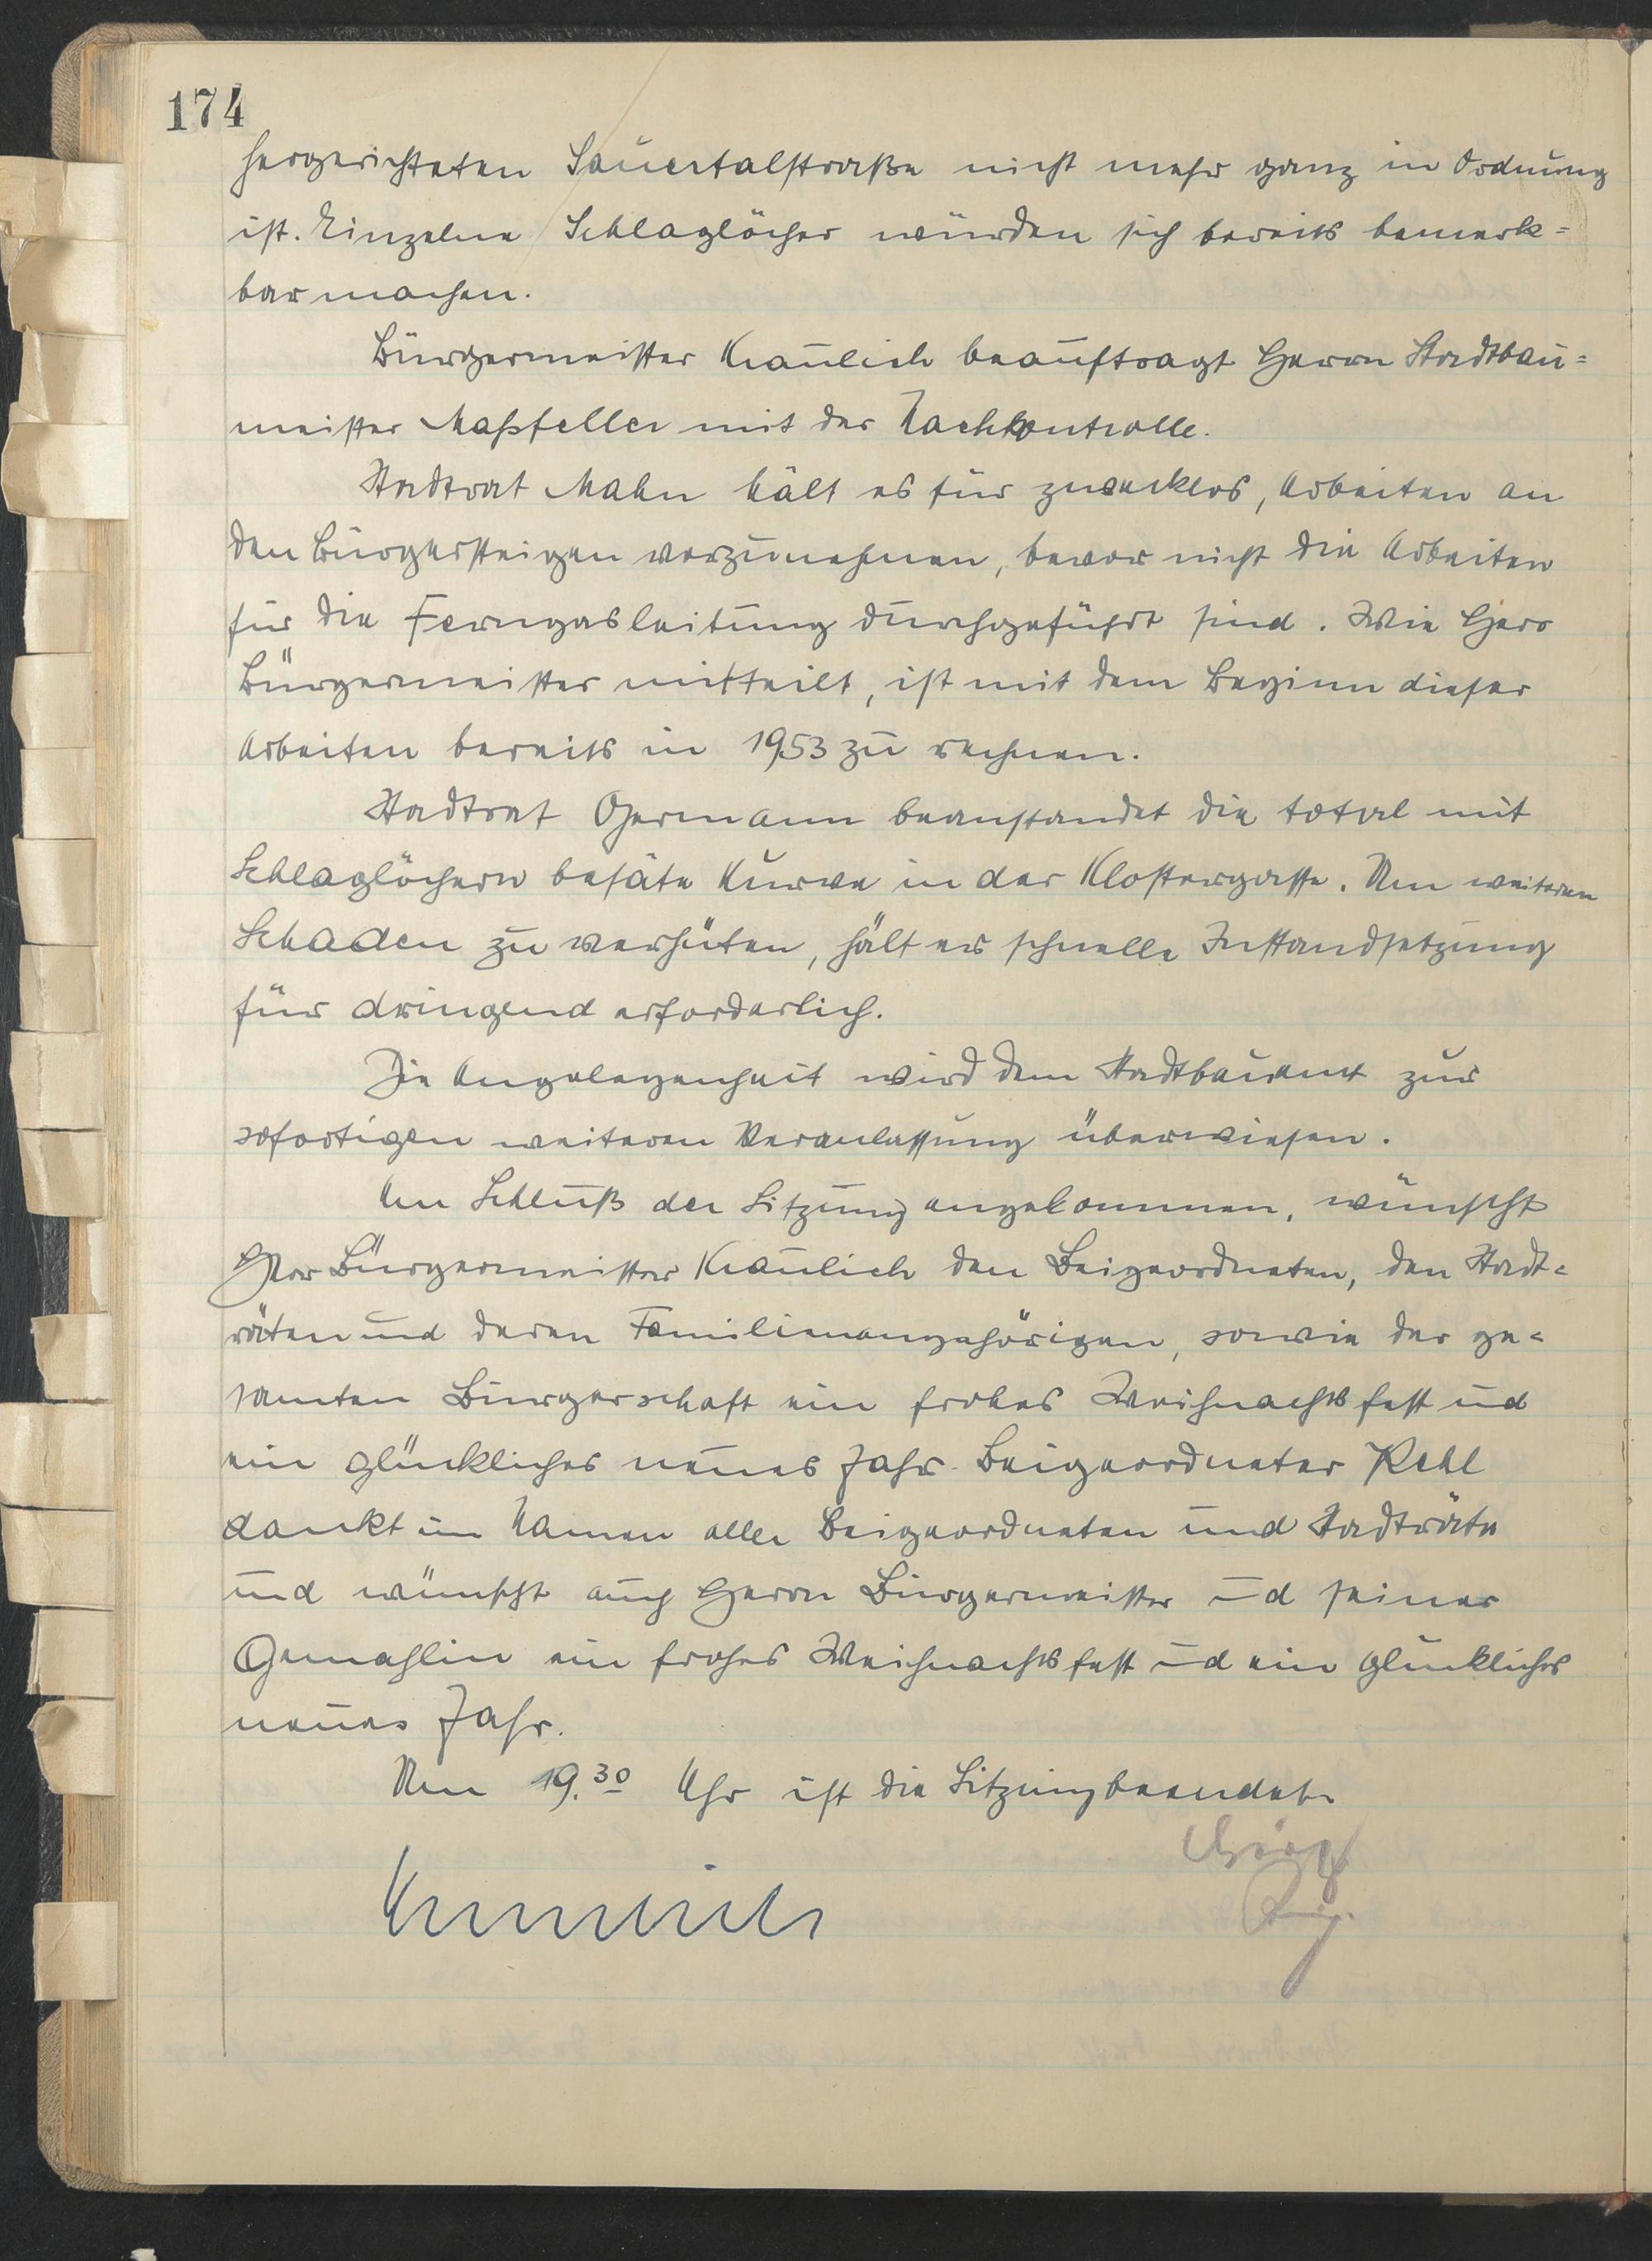 174
hergerichteten Sauertalstraße nicht mehr ganz in Ordnung
ist. Einzelne Schlaglöcher würden sich bereits bemerk=
bar machen.
Bürgermeister Kraulich beauftragt Herrn Stadtbau=
meister Maßfeller mit der Nachkontrolle.
Stadtrat Mahn hält es für zwecklos, Arbeiten an
den Bürgersteigen vorzunehmen, bevor nicht die Arbeiten
für die Ferngasleitung durchgeführt sind. Wie Herr
Bürgermeister mitteilt, ist mit dem Beginn dieser
Arbeiten bereits in 1953 zu rechnen.
Stadtrat Germann beanstandet die total mit
Schlaglöchern besäte Kurve in der Klostergasse. Um weiteren
Schaden zu verhüten, hält er schnelle Instandsetzung
für dringend erforderlich.
Die Angelegenheit wird dem Stadtbauamt zur
sofortigen weiteren Veranlassung überwiesen.
Am Schluß der Sitzung angekommen, wünscht
Herr Bürgermeister Kraulich den Beigeordneten, den Stadt=
räten und deren Familienangehörigen, sowie der ge=
samten Bürgerschaft ein frohes Weihnachtsfest und
ein glückliches neues Jahr. Beigeordneter Kehl
dankt im Namen aller Beigeordneten und Stadträte
und wünscht auch Herrn Bürgermeister und seiner
Gemahlin ein frohes Weihnachtsfest und ein glückliches
neues Jahr.
Um 19.30 Uhr ist die Sitzung beendet.
Kraulich